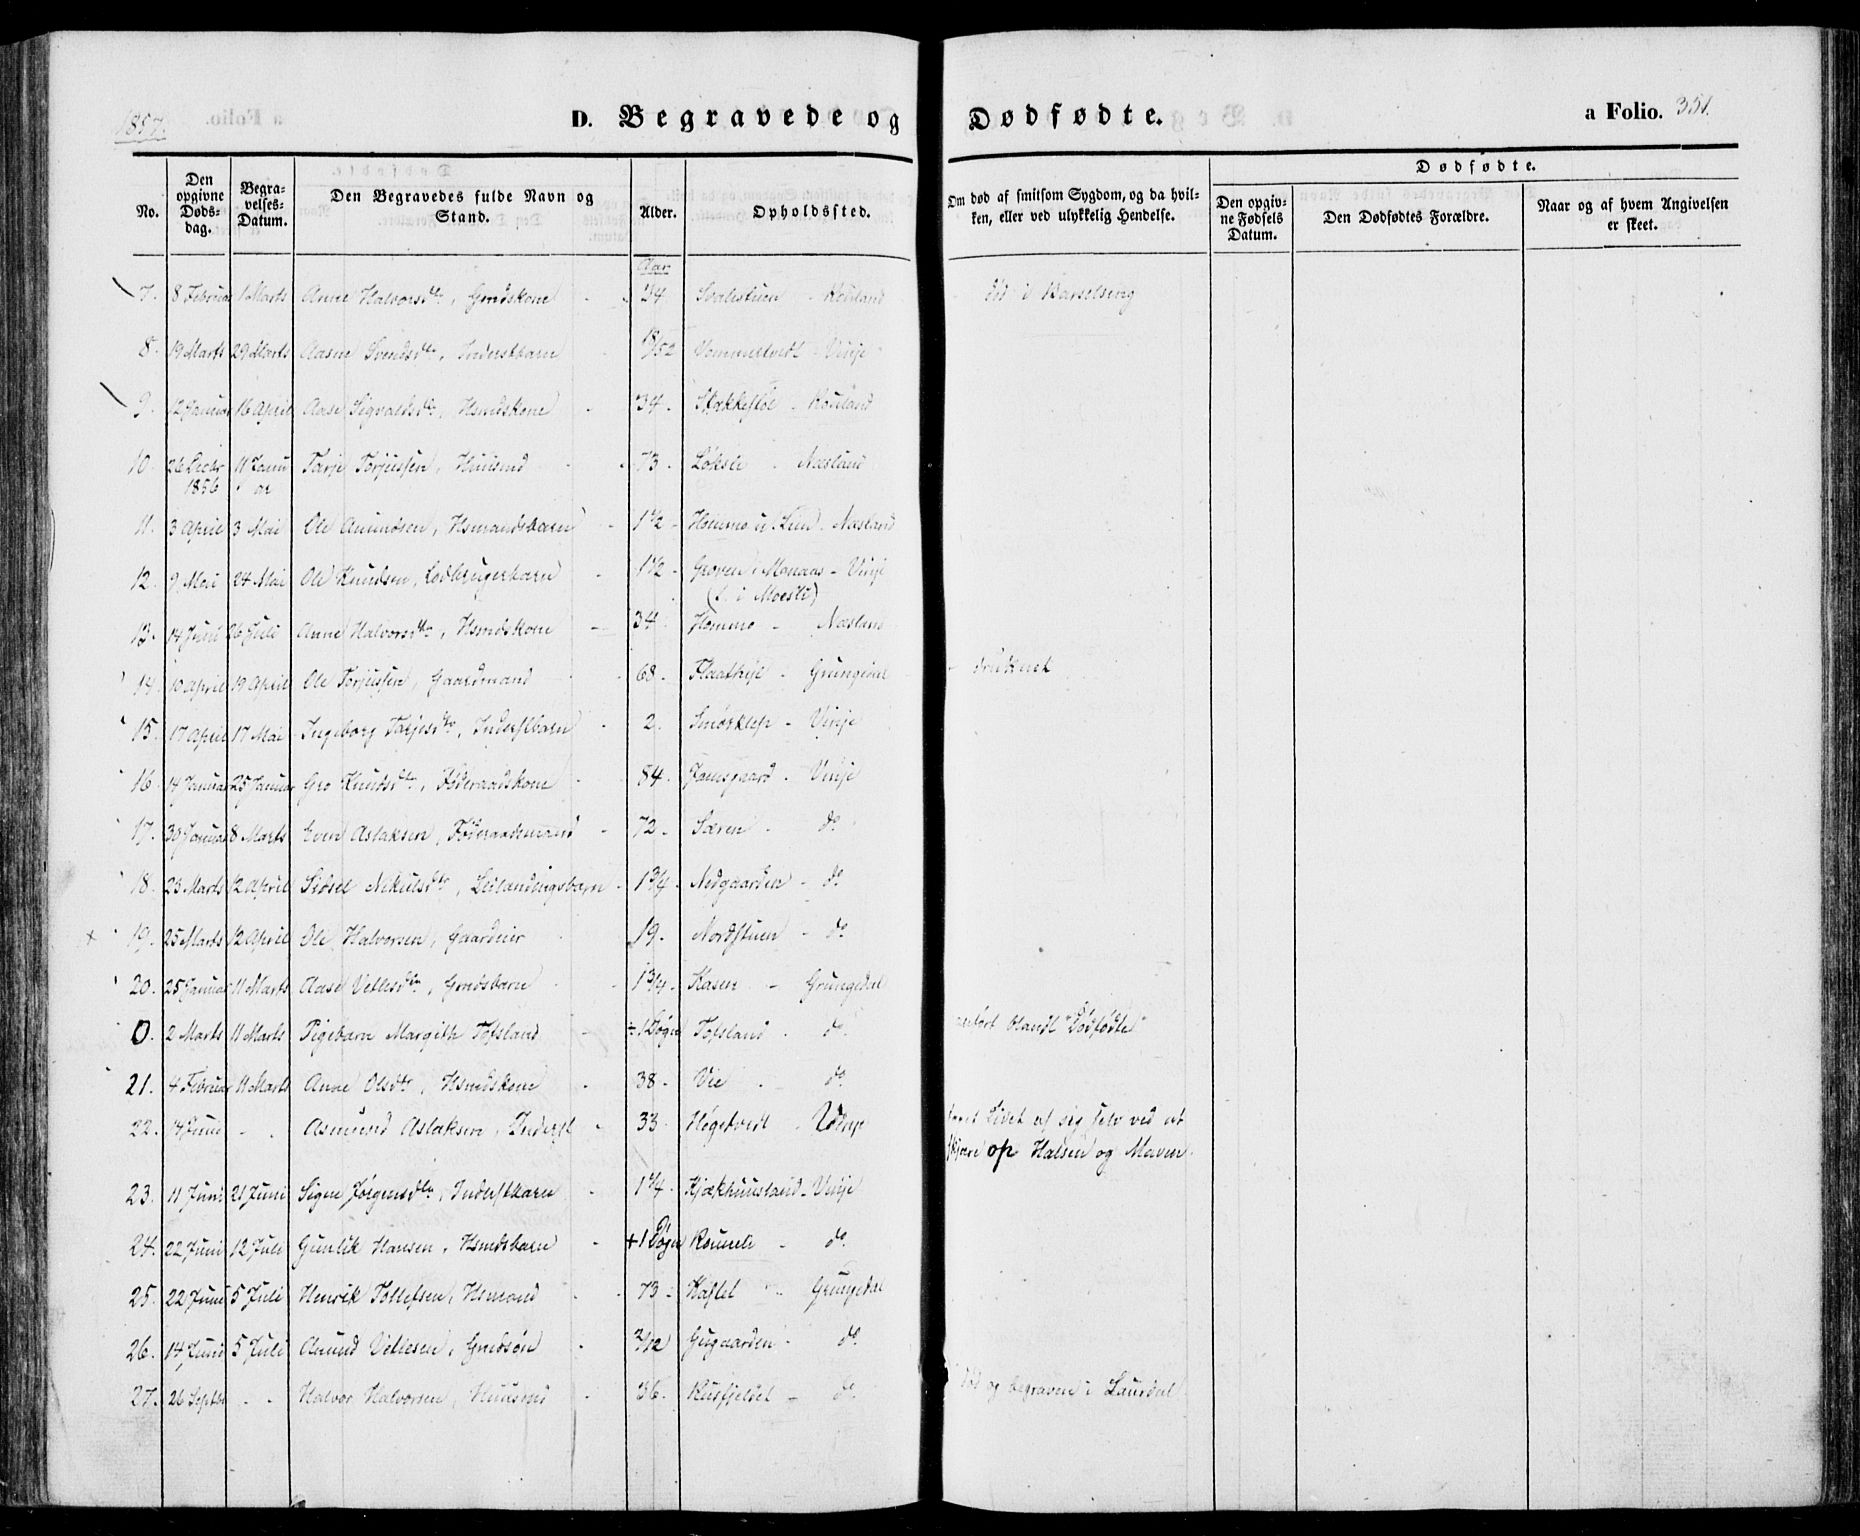 1857.
D. Begravede og Dødfødte.
a Folio. 351.
No.
Den opgivne Døds-dag.
Begra-velses-Datum.
Den Begravedes fulde Navn og Stand.
Alder.
Opholdssted.
Om død af smitsom Sygdom, og da hvil-ken, eller ved ulykkelig Hendelse.
Dødfødte.
Den opgiv-ne Fødsels Datum.
Den Dødfødtes Forældre.
Naar og af hvem Angivelsen er skeet.
Aar
7. 8 Februar 1 Marts Anne Halvorsdtr, Gmdskone 24 Svalestuen - Rouland død i Barselseng
8. 19 Marts 29 Marts Aasne Svendsdtr, Inderstbarn 18/52 Vommeltvedt - Vinje
9. 12 Januar 16 April Aase Sigvaldsdtr, Hsmdskone - 34 - Stækkestøl - Rouland
10. 26 Decbr 1856 11 Januar Tarje Torjussen, Huusmd - 73 - Løksli - Næsland
11. 3 April 3 Mai Ole Amundsen, Hsmandsbarn - 1 1/2 - Hommo u. Lien - Næsland
12. 9 Mai 24 Mai Ole Knudsen, Lodbrugerbarn - 1 1/2 - Groven i Manaas - Vinje
(f. i Moesli)
13. 14 Juni 26 Juli Anne Halvorsdtr, Hsmdskone - 34 - Hommo - Næsland
14. 10 April 19 April Ole Torjussen, Gaardmand 68 - Flaathyl - Grungedal - druknet
15. 17 April 17 Mai Ingeborg Tarjesdtr, Inderstbarn 2. Smørklep - Vinje
16. 14 Januar 25 Januar Gro Knudsdtr, Føderaadskone - 84 - Jamsgaard - Vinje
17. 30 Januar 8 Marts Even Aslaksen, Føderaadsmand - 72 - Særen - do
18. 23 Marts 12 April Sidsel Nikulsdtr, Leilændingsbarn - 1 3/4 - Nedgaarden - do
19. 25 Marts 12 April Ole Halvorsen, Gaardeier 19 - Nordstuen - do
20. 25 Januar 11 Marts Aase Vetlesdtr, Gmdsbarn 1 3/4 - Kasen - Grungedal
0. 2 Marts 11 Marts Pigebarn Margith Tofsland ÷ 1 Døgn Tofsland - do anført blandt "Dødfødte"
21. 4 Februar 11 Marts Anne Olsdtr, Hsmdskone - 38 - Vee - do
22. 14 Juni - - Asmund Aslaksen, Inderst - 33 - Høgetvedt - taget Livet af sig selv ved at
skjære op Halsen og Maven.
23. 11 Juni 21 Juni Signe Jørgensdtr, Inderstbarn - 1 1/4 - Kjækhuusland - Vinje
24. 22 Juni 12 Juli Gunlik Hansen, Hsmdsbarn - + 1 Døgn - do
25. 22 Juni 5 Juli Henrik Tollefsen, Hsmand - 73 - Kastet - Grungedal
26. 14 Juni 5 Juli Amund Vetlesen, Gmdsøn - 2/12 Gugaarden - do
27. 26 Septbr - - Halvor Halvorsen, Huusmd - 36 - Rusfjeldet - do død og begraven i Laurdal